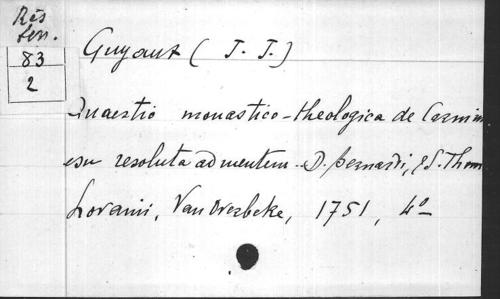 Rés
Sen.
83
2
Guyaux (J. J.)
Quaestio monastico-theologica de Carnium
esu resoluta ad mentem D. Bernardi, et S. Thom
Lovanii, Van Overbeke, 1751, 4º